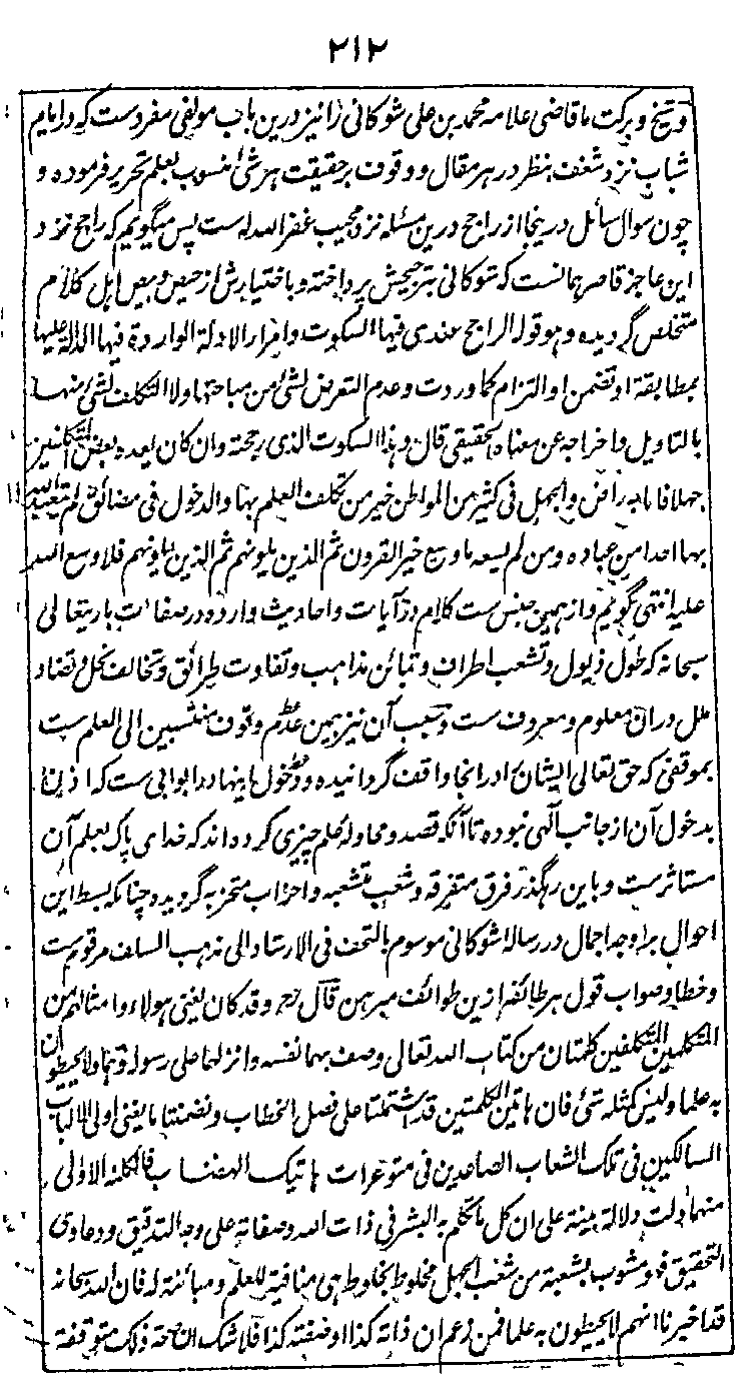 ۲۱۲
و شیخ و برکت ما قاضی علامه محمد بن علی شوکانی را نیز درین باب مولفی مفردست که در ایام
شباب نزد شغف بنظر در هر مقال و وقوف بر حقیقت هر شئ منسوب بعلم تحریر فرموده و
چون سوال سائل درینجا از راجح درین مسئله نزد مجیب غفر الله له است پس میگویم که راجح نزد
این عاجز قاصر همانست که شوکانی بترجیحش پرداخته و باختیارش از حیص و بیص اہل کلام
متخلص گردیده و ہو قوله الراجح عندی فیها السکوت وامرار الادلة الواردة فیها الدالة علیها
بمطابقة او تضمن او التزام کما وردت وعدم التعرض لشئ من مباحثها ولا التکلف لشئ منها
بالتاویل واخراجه عن معناه الحقیقی قال وہذا السکوت الذی رجحته وان کان یعده بعض المتکلفین
جهلا فانا به راض والجهل فی کثیر من المواطن خیر من تکلف العلم بها والدخول فی مضائق لم یتعبد الله
بها احدا من عباده ومن لم یسعه ما وسع خیر القرون ثم الذین یلونهم ثم الذین یلونهم فلا وسع الله
علیه انتهی گویم و از همین جنس ست کلام در آیات و احادیث وارده در صفات باریتعالی
سبحانه که طول ذیول و تشعب اطراف و تبائن مذاہب و تفاوت طرائق و تخالف نحل و تضاد
ملل دران معلوم و معروف ست و سبب آن نیز همین عدم وقوف منتسبین الی العلم ست
بموقفی که حق تعالی ایشان را در انجا واقف گردانیده و دخول اینها در ابوابی ست که اذن
بدخول آن از جانب آلهی نبوده تا آنکه قصد و محاولۂ علم چیزی کرده اند که خدای پاک بعلم آن
مستاثرست و باین رهگذر فرق متفرقه و شعب متشعبه و احزاب متحزبه گردیده چنانکه بسط این
احوال بر وجه اجمال در رسالۂ شوکانی موسوم بالتحف فی الارشاد الی مذہب السلف مرقوم ست
و خطا و صواب قول هر طائفه ازین طوائف مبرہن قال رح وقد کان یغنی ہولاء وامثالهم من
المتکلمین المتکلفین کلمتان من کتاب الله تعالی وصف بهما نفسه وانزلهما علی رسوله وهما ولا یحیطون
به علما ولیس کمثله شئ فان ہاتین الکلمتین قد اشتملتا علی فصل الخطاب وتضمنتا ما یغنی اولی الالباب
السالکین فی تلک الشعاب الصاعدین فی متوعرات ہاتیک الهضاب فالکلمة الاولی
منهما دلت دلالة بینة علی ان کل ما تکلم به البشر فی ذات الله وصفاته علی وجه التدقیق ودعاوی
التحقیق فهو مشوب بشعبة من شعب الجهل مخلوط بخلوط ہی منافیة للعلم ومبائنة له فان الله سبحانه
قد اخبرنا انهم لا یحیطون به علما فمن زعم ان ذاته کذا او صفته کذا فلا شک ان صحة ذلک متوقفة